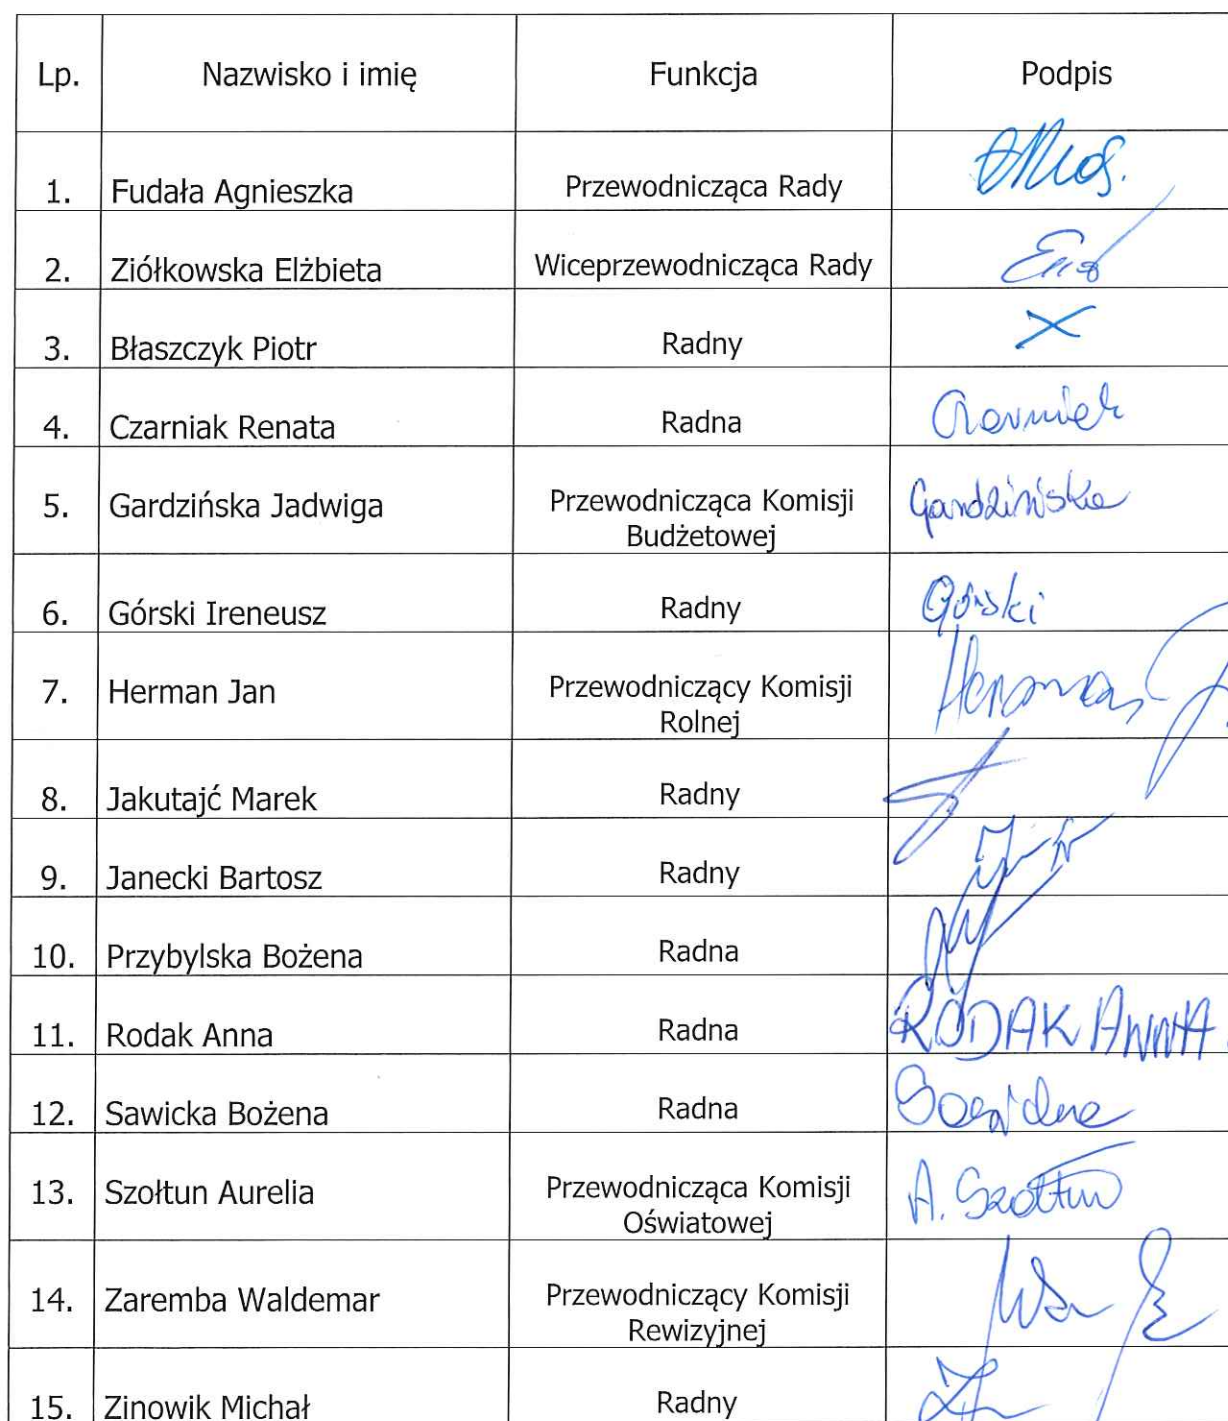 Lp. Nazwisko i imię Funkcja Podpis
1. Fudała Agnieszka Przewodnicząca Rady
2. Ziółkowska Elżbieta Wiceprzewodnicząca Rady
3. Błaszczyk Piotr Radny X
4. Czarniak Renata Radna Czarniak
5. Gardzińska Jadwiga Przewodnicząca Komisji Gardzińska
Budżetowej
6. Górski Ireneusz Radny Górski
7. Herman Jan Przewodniczący Komisji Herman J.
Rolnej
8. Jakutajć Marek Radny
9. Janecki Bartosz Radny
10. Przybylska Bożena Radna
11. Rodak Anna Radna RODAK ANNA
12. Sawicka Bożena Radna Sawicka
13. Szołtun Aurelia Przewodnicząca Komisji A. Szołtun
Oświatowej
14. Zaremba Waldemar Przewodniczący Komisji
Rewizyjnej
15. Zinowik Michał Radny